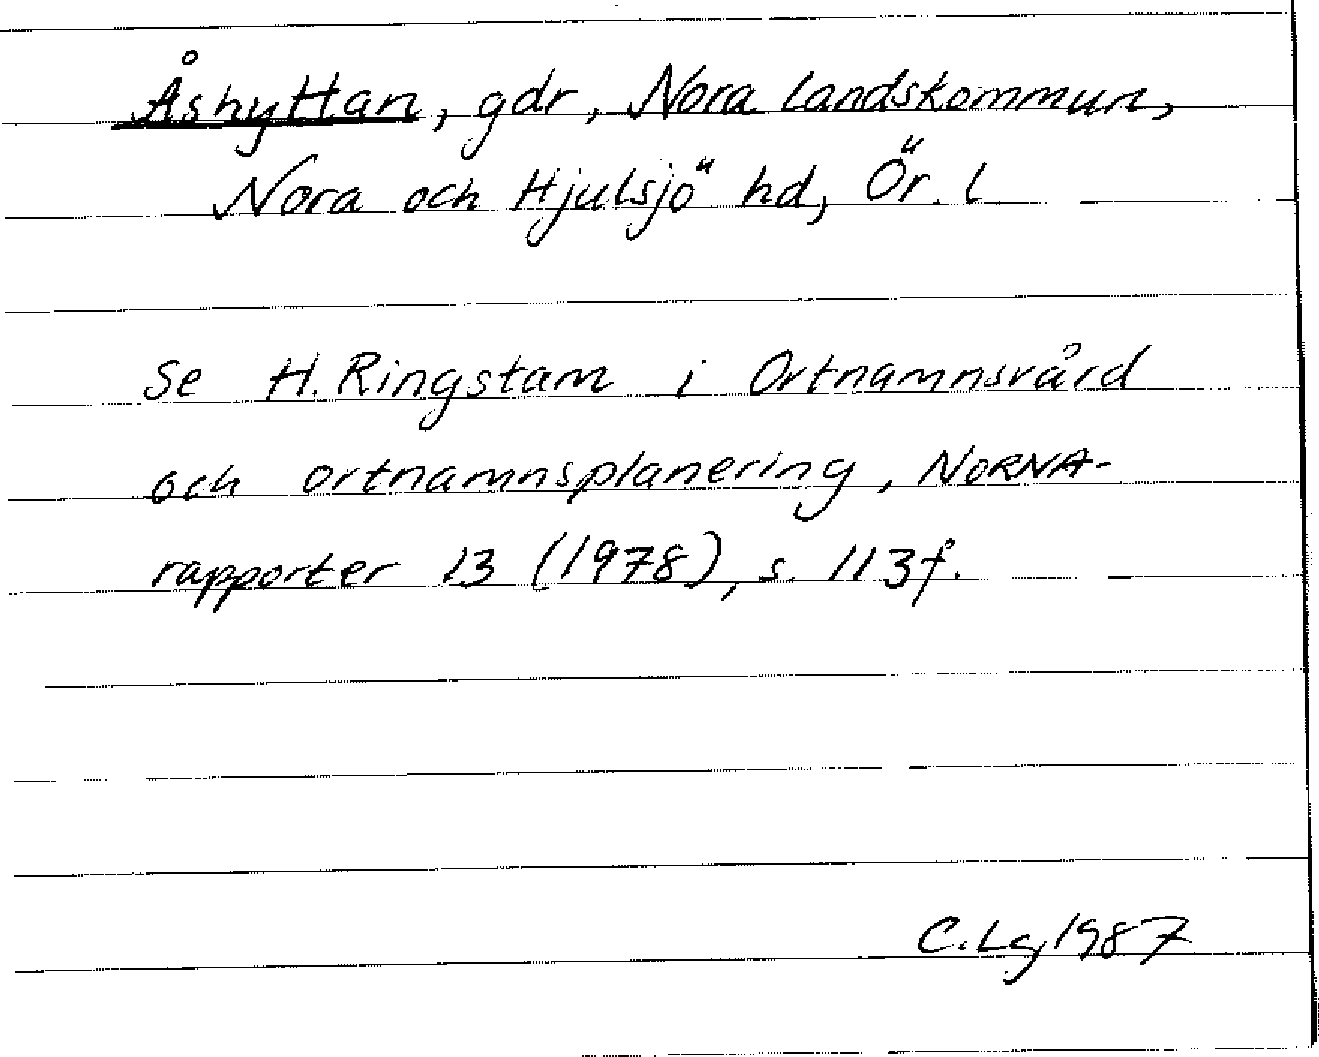 Åshyttan, gdr, Nora landskommun,
Nora och Hjulsjö hd, Ör. l
Se H. Ringstam i Ortnamnsvård
och ortnamnsplanering, NORNA-
rapporter 13 (1978), s. 113f.
C. Lg 1987